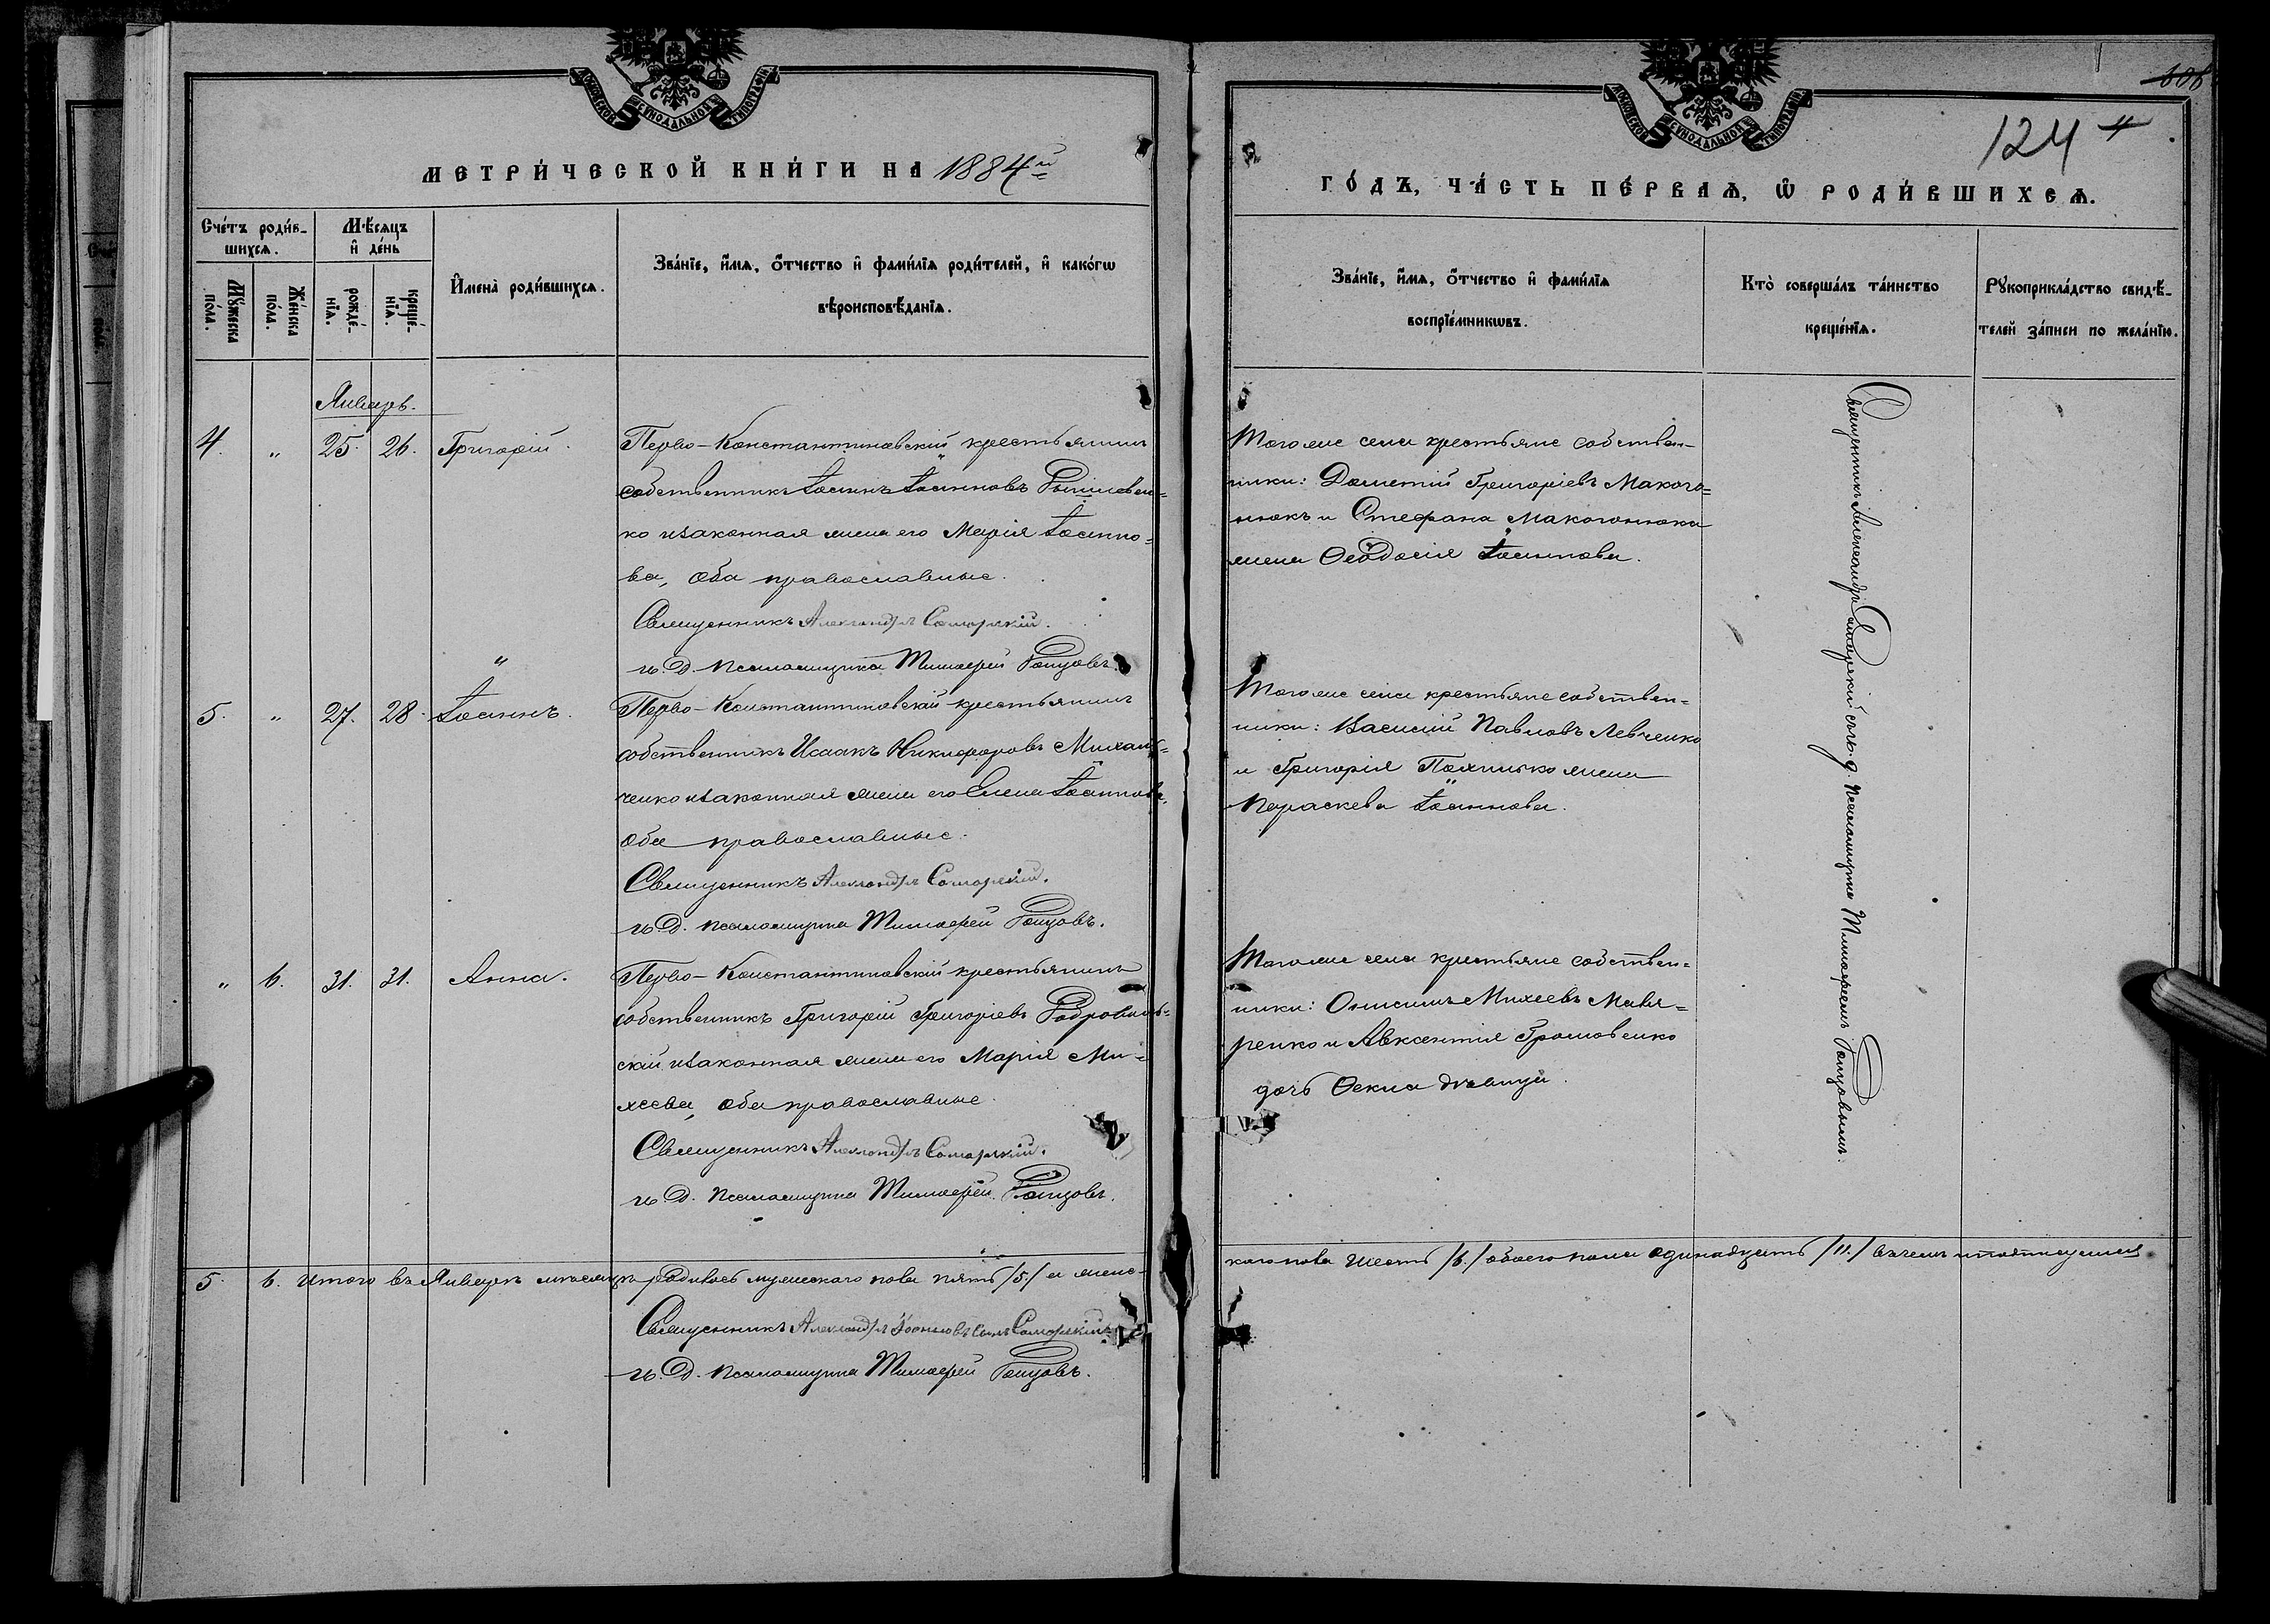 МОСКОВСКОЙ СУНОДАЛЬНОЙ ТИПОГРАФІИ
МЕТРИ́ЧЕСКОЙ КНИ́ГИ НА 1884й
Сче́тъ роди́в-
шихсѧ.
Мѣ́сѧцъ
и҆ де́нь
И҆мена̀ роди́вшихсѧ.
Зва́нїе, и҆́мѧ, ѻ҆́тчество и҆ фами́лїѧ роди́телей, и҆ како́гѡ
вѣроисповѣ́данїѧ.
Мꙋ́жеска
по́ла.
Же́нска
по́ла.
рожде́-
нїѧ.
креще́-
нїѧ.
Январь.
4. " 25. 26. Григорій.
Перво-Константиновскій крестьянинъ
собственникъ Іоаннъ Іоанновъ
ко и законная жена его Марія Іоанно=
ва, оба православные.
Священникъ Александръ Самарскій.
и. д. псаломщика Тимофей
5. " 27. 28. Іоаннъ.
Перво-Константиновскій крестьянинъ
собственникъ Исаакъ Никифоровъ Михай=
ченко и законная жена его Елена Іоаннова,
оба православные.
Священникъ Александръ Самарскій.
и. д. псаломщика Тимофей
" 6. 31. 31. Анна.
Перво-Константиновскій крестьянинъ
собственникъ Григорій Григоріевъ
скій и законная жена его Марія Ми=
хеева, оба православные.
Священникъ Александръ Самарскій.
и. д. псаломщика Тимофей
5. 6. Итого въ Январѣ мѣсяцѣ родилось мужескаго пола пять /5/ а женс-
Священникъ Александръ сынъ Самарскій
и. д. псаломщика Тимофей
МОСКОВСКОЙ СУНОДАЛЬНОЙ ТИПОГРАФІИ
606
124
ГО́ДЪ, ЧА́СТЬ ПЕ́РВАѦ, Ѽ РОДИ́ВШИХСѦ.
Зва́нїе, и҆́мѧ, ѻ҆́тчество и҆ фами́лїѧ
воспрїе́мникѡвъ.
Кто̀ соверша́лъ та́инство
креще́нїѧ.
Рꙋкоприкла́дство свидѣ́-
телей за́писи по жела́нїю.
Тогоже села крестьяне собствен=
ники: Дометій Григоріевъ Макого=
нюкъ и Стефана Макогонюка
жена Ѳеодосія Іоаннова.
Тогоже села крестьяне собствен=
ники: Василій Павловъ Левченко
и Григорія жена
Параскева Іоаннова.
Тогоже села крестьяне собствен=
ники: Онисимъ Михеевъ Макa=
ренко и Авксентія Громовенко
дочь Ѳекла дѣвица.
Священникъ Александръ Самарскій съ и. д. псаломщика Тимофеемъ
каго пола шесть /6./ обоего пола одинадцать /11./